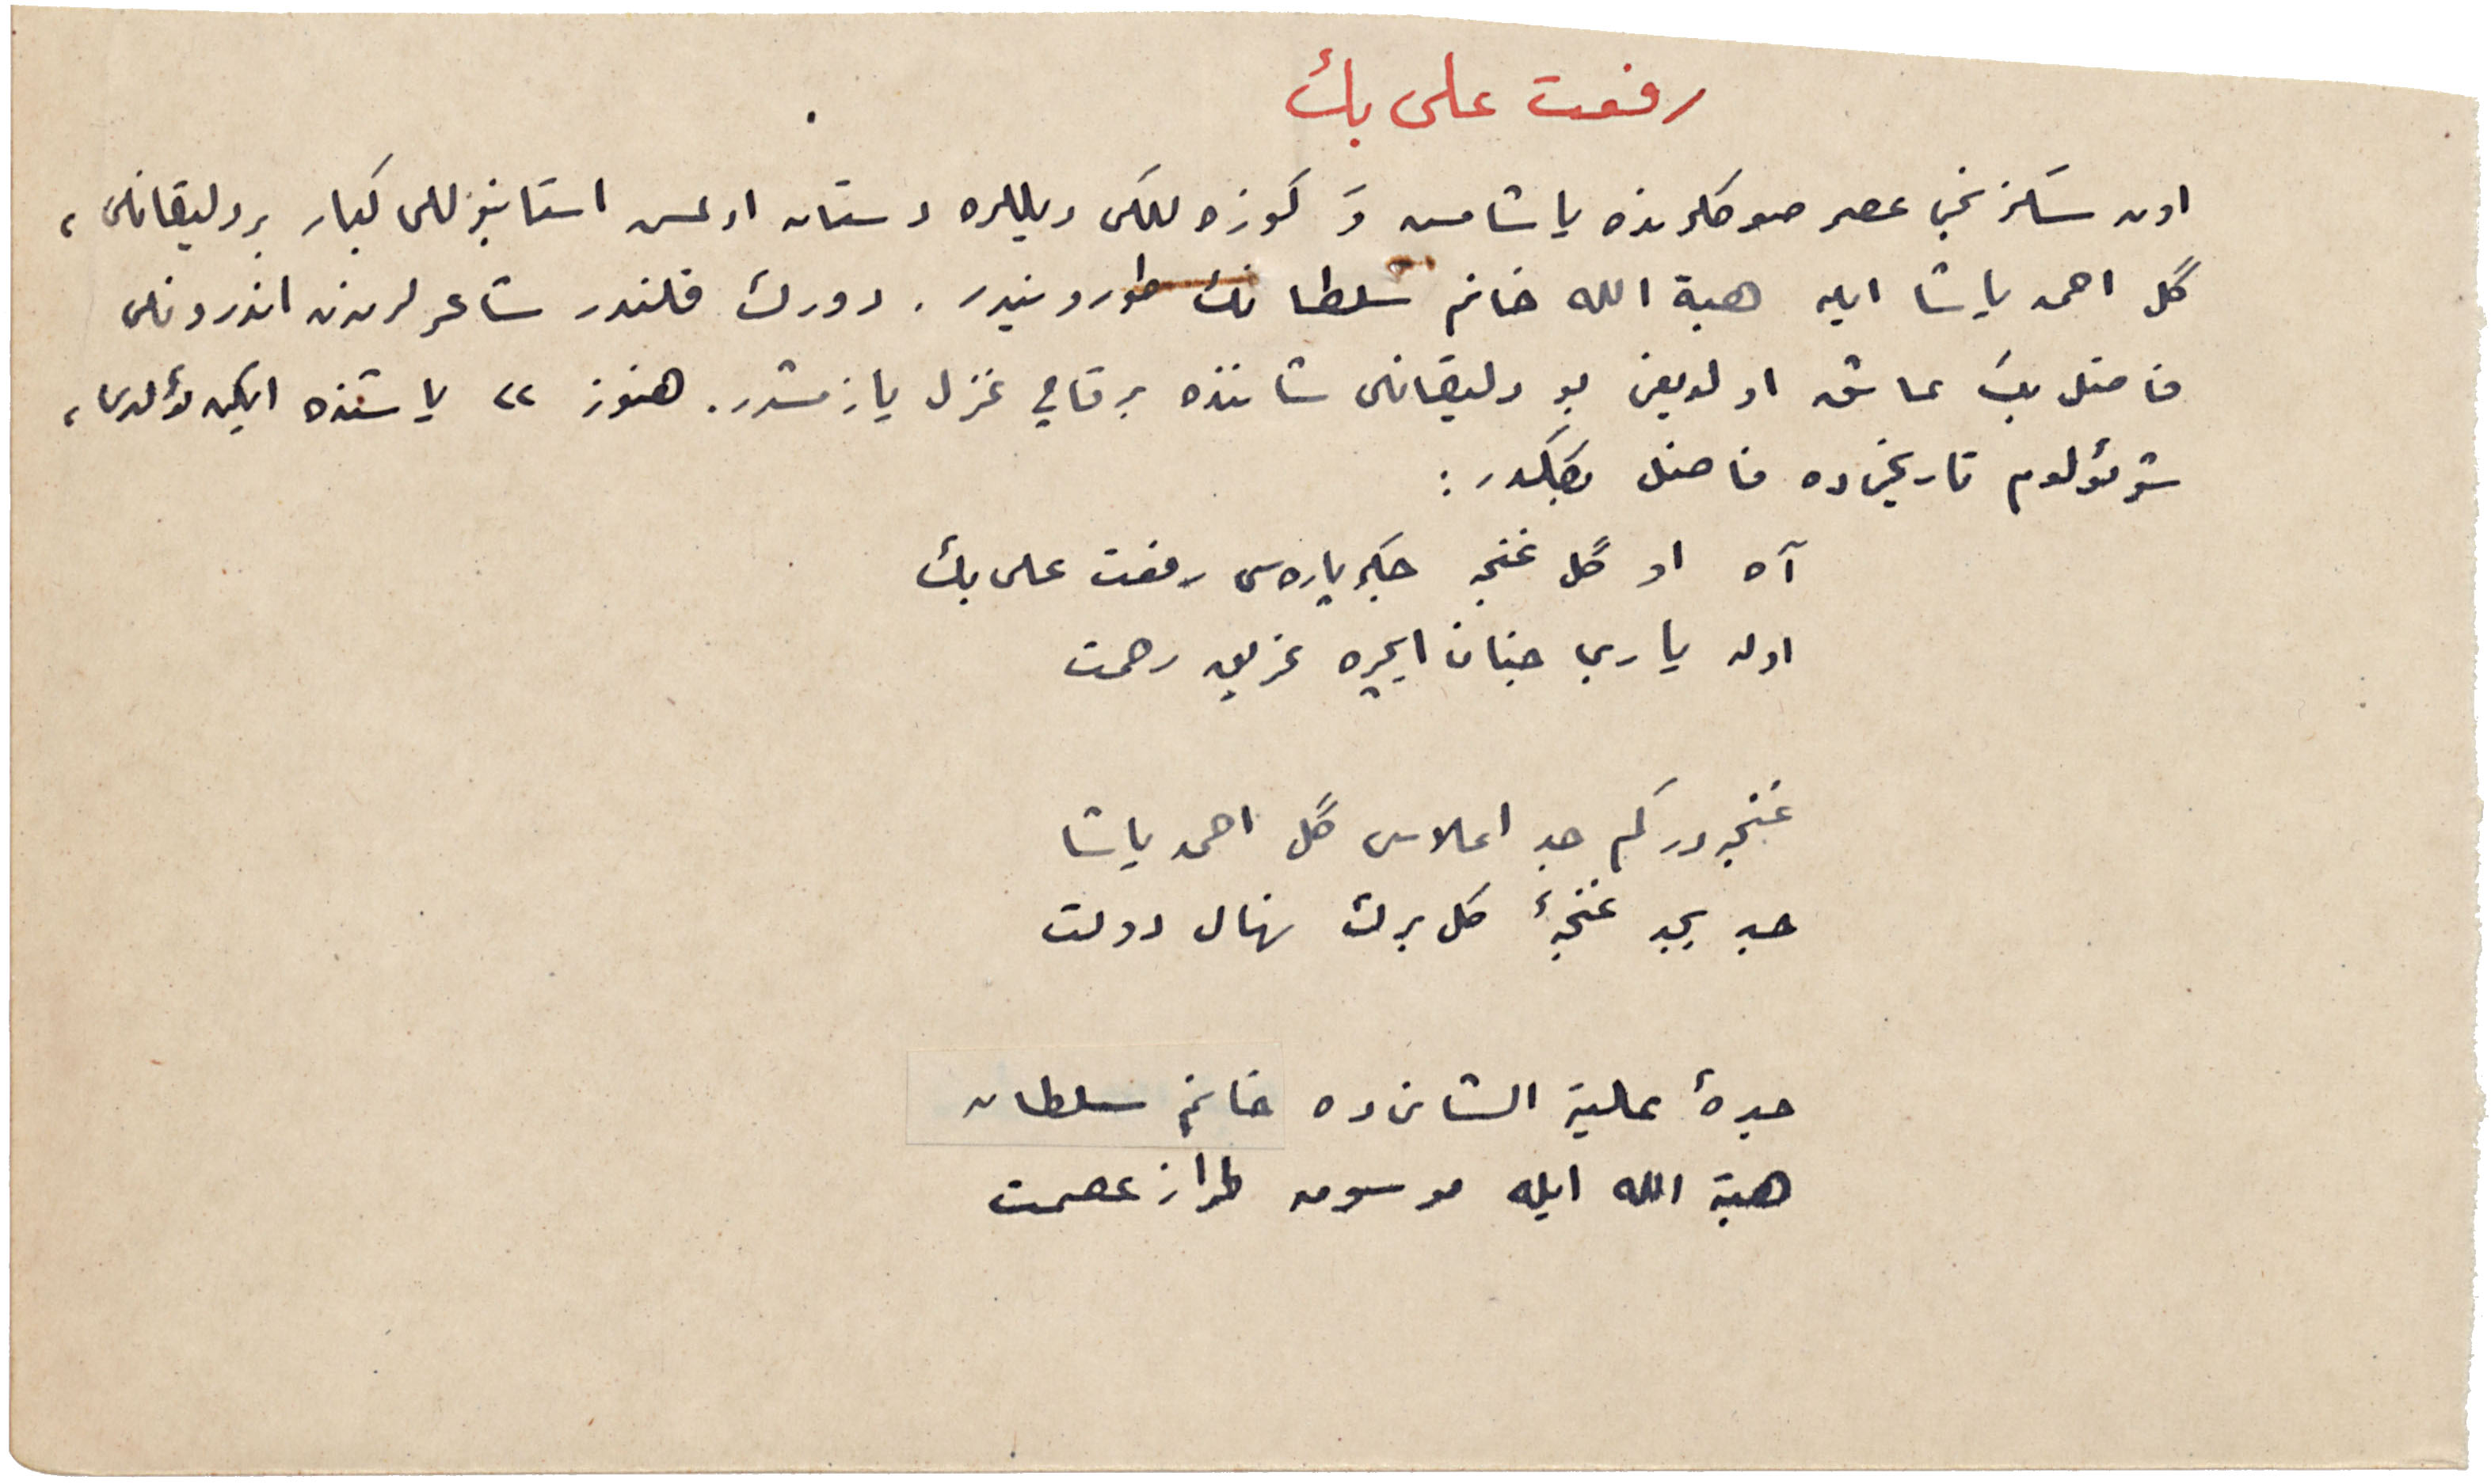 رفعت على بك
اون سكزنجى عصر صوكلرنده ياشامش و كوزه للكى ديللره دستان اولمش استانبوللى كبار بر دليقانلى،
گل احمد پاشا ايله هبة الله خانم سلطانك طورونيدر. دورك قلندر شاعرلرندن اندرونلى
فاضل بك عاشق اولديغى بو دليقانلى شاننده بر قاچ غزل يازمشدر. هنوز ٢٢ ياشنده ايكن ئولدى،
شو ئولوم تاريخى ده فاضل بكڭدر:
آه او گل غنچه جكر پاره سى رفعت على بك
اوله يا رب جنان ايچره غريق رحمت
غنچه در كم جد اعلاسى گل احمد پاشا
جد بجد غنچهٔ گل برك نهال دولت
جدهٔ علية الشانى ده خانم سلطان
هبة الله ايله موسومه طراز عصمت